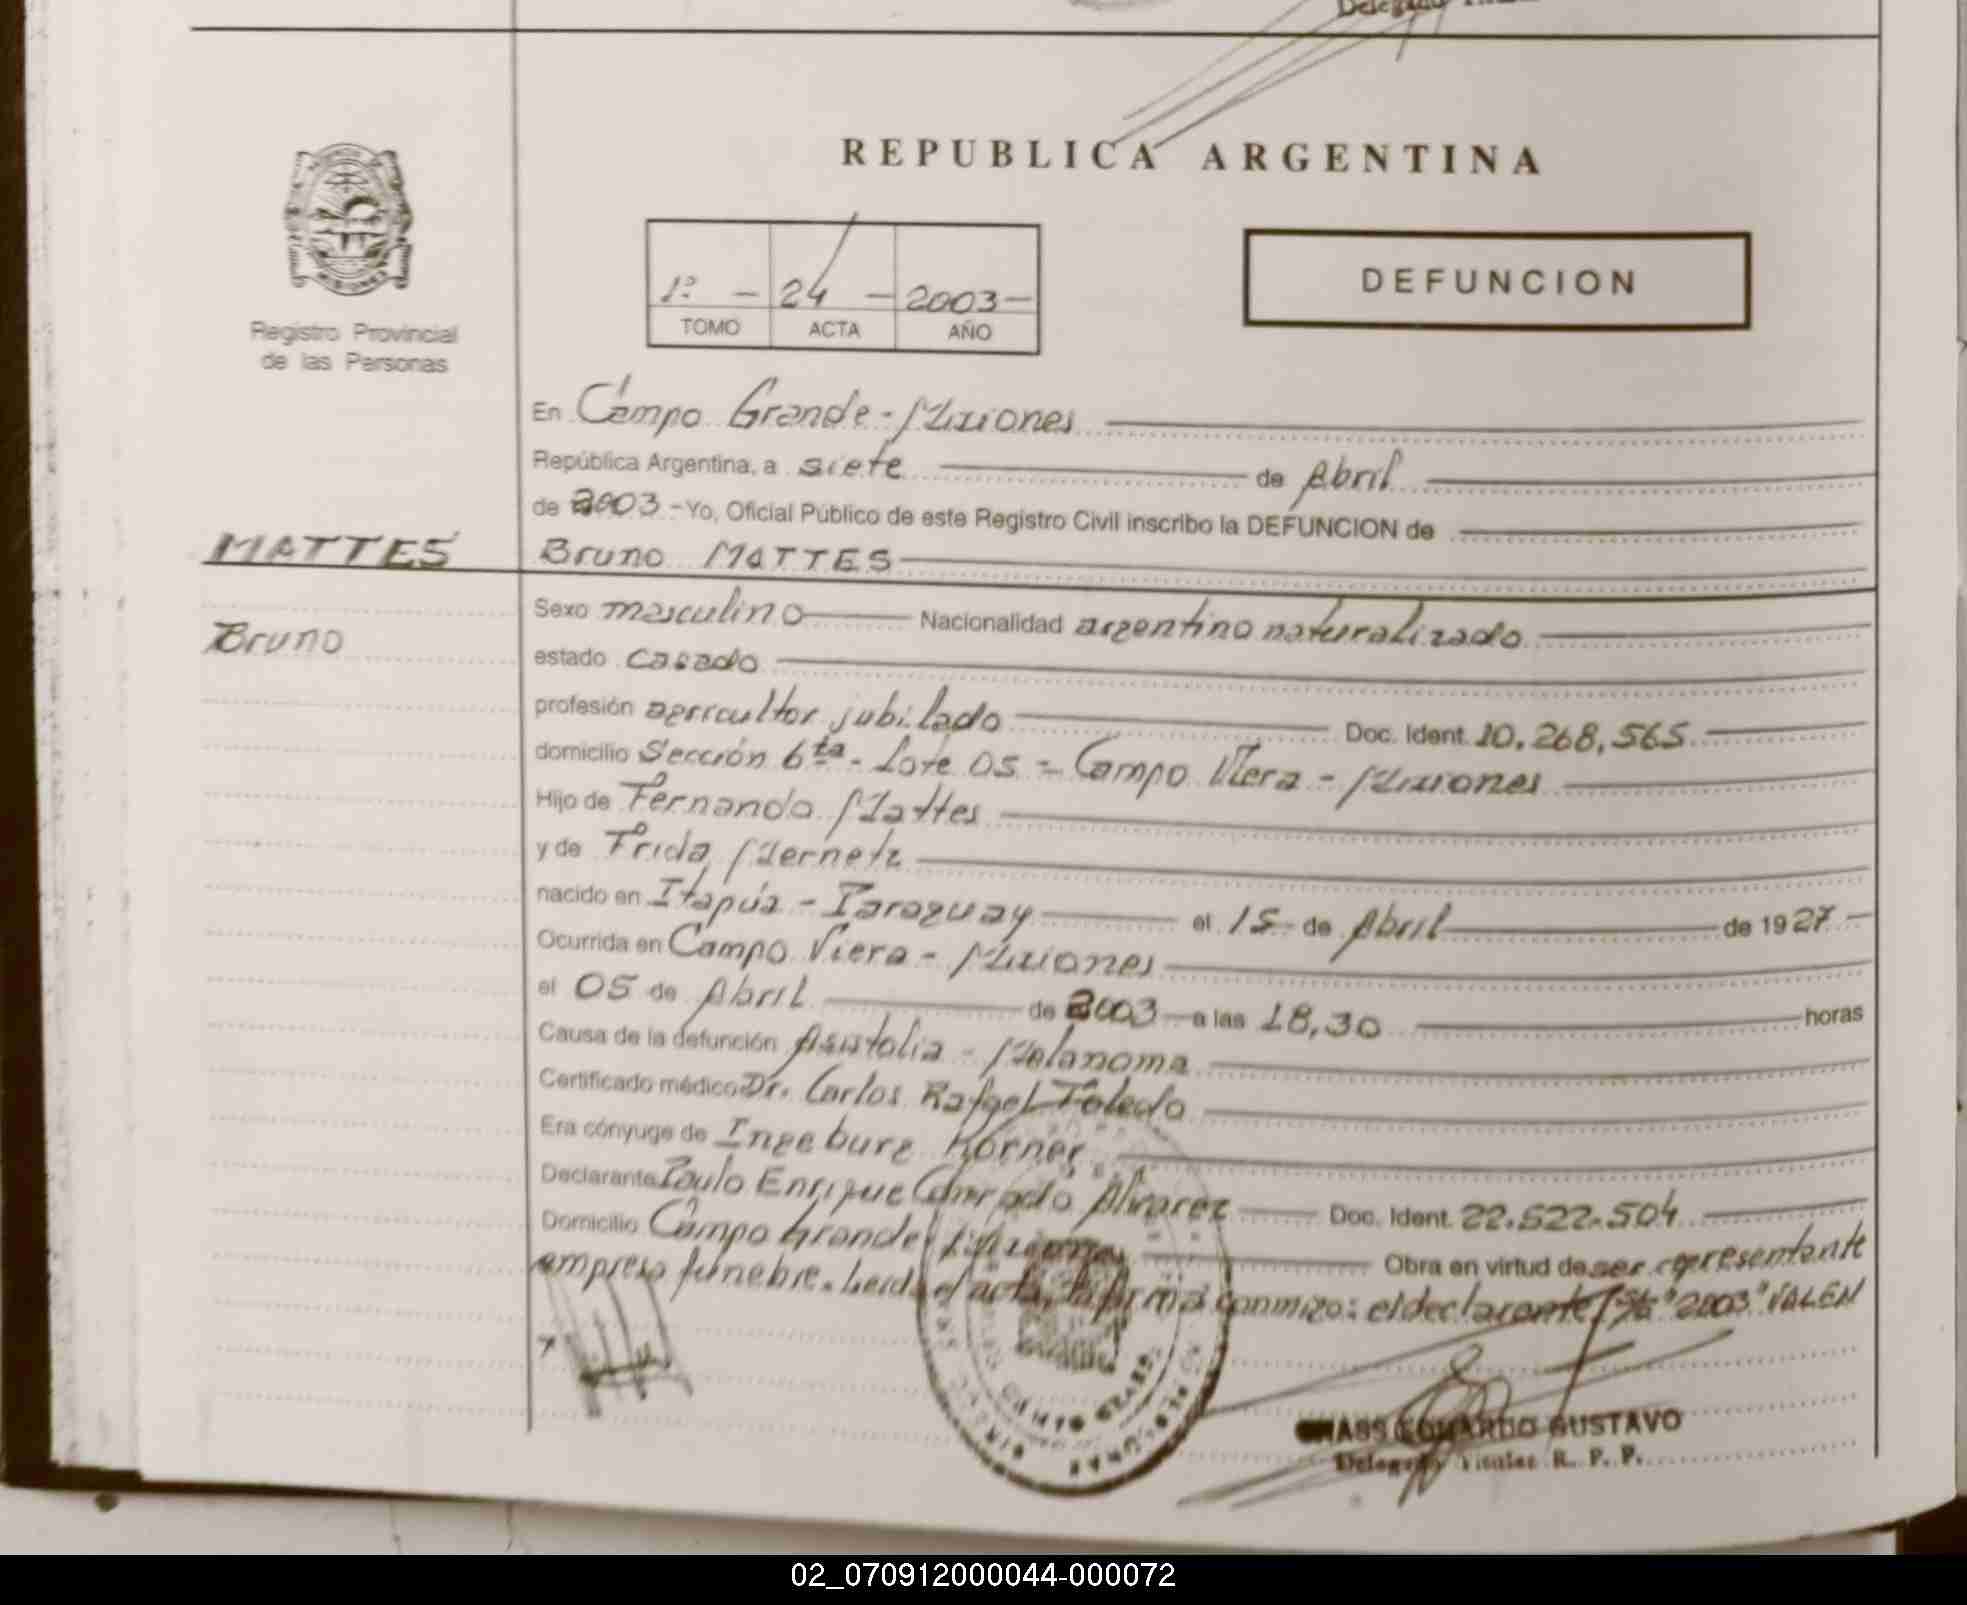 REPUBLICA ARGENTINA
Registro Provincial
de las Personas
1º - 24 - 2003 -
TOMO ACTA AÑO
DEFUNCION
En Campo Grande - Misiones
República Argentina, a siete de Abril
de 2003 - Yo, Oficial Público de este Registro Civil inscribo la DEFUNCION de
MATTES
Bruno MATTES
Bruno
Sexo masculino Nacionalidad argentino naturalizado
estado casado
profesión agricultor jubilado Doc. Ident. 10,268,565
domicilio Sección 6ta - Lote 05 - Campo Viera - Misiones
Hijo de Fernando Mattes
y de Frida Mernetz
nacido en Itapúa - Paraguay el 15 de Abril de 1927 -
Ocurrida en Campo Viera - Misiones
el 05 de Abril de 2003 a las 18,30 horas
Causa de la defunción Asistolia - Melanoma
Certificado médico Dr. Carlos Rafael Toledo
Era cónyuge de Ingeburg Korner
Declarante Paulo Enrique Conrado Alvarez Doc. Ident. 22.522.504
Domicilio Campo Grande Misiones Obra en virtud de ser representante
empresa fúnebre. Leida el acta, la firma conmigo: el declarante S/r "2003" VALEN
EDUARDO GUSTAVO
Delegado Titular R. P. P.
02_070912000044-000072